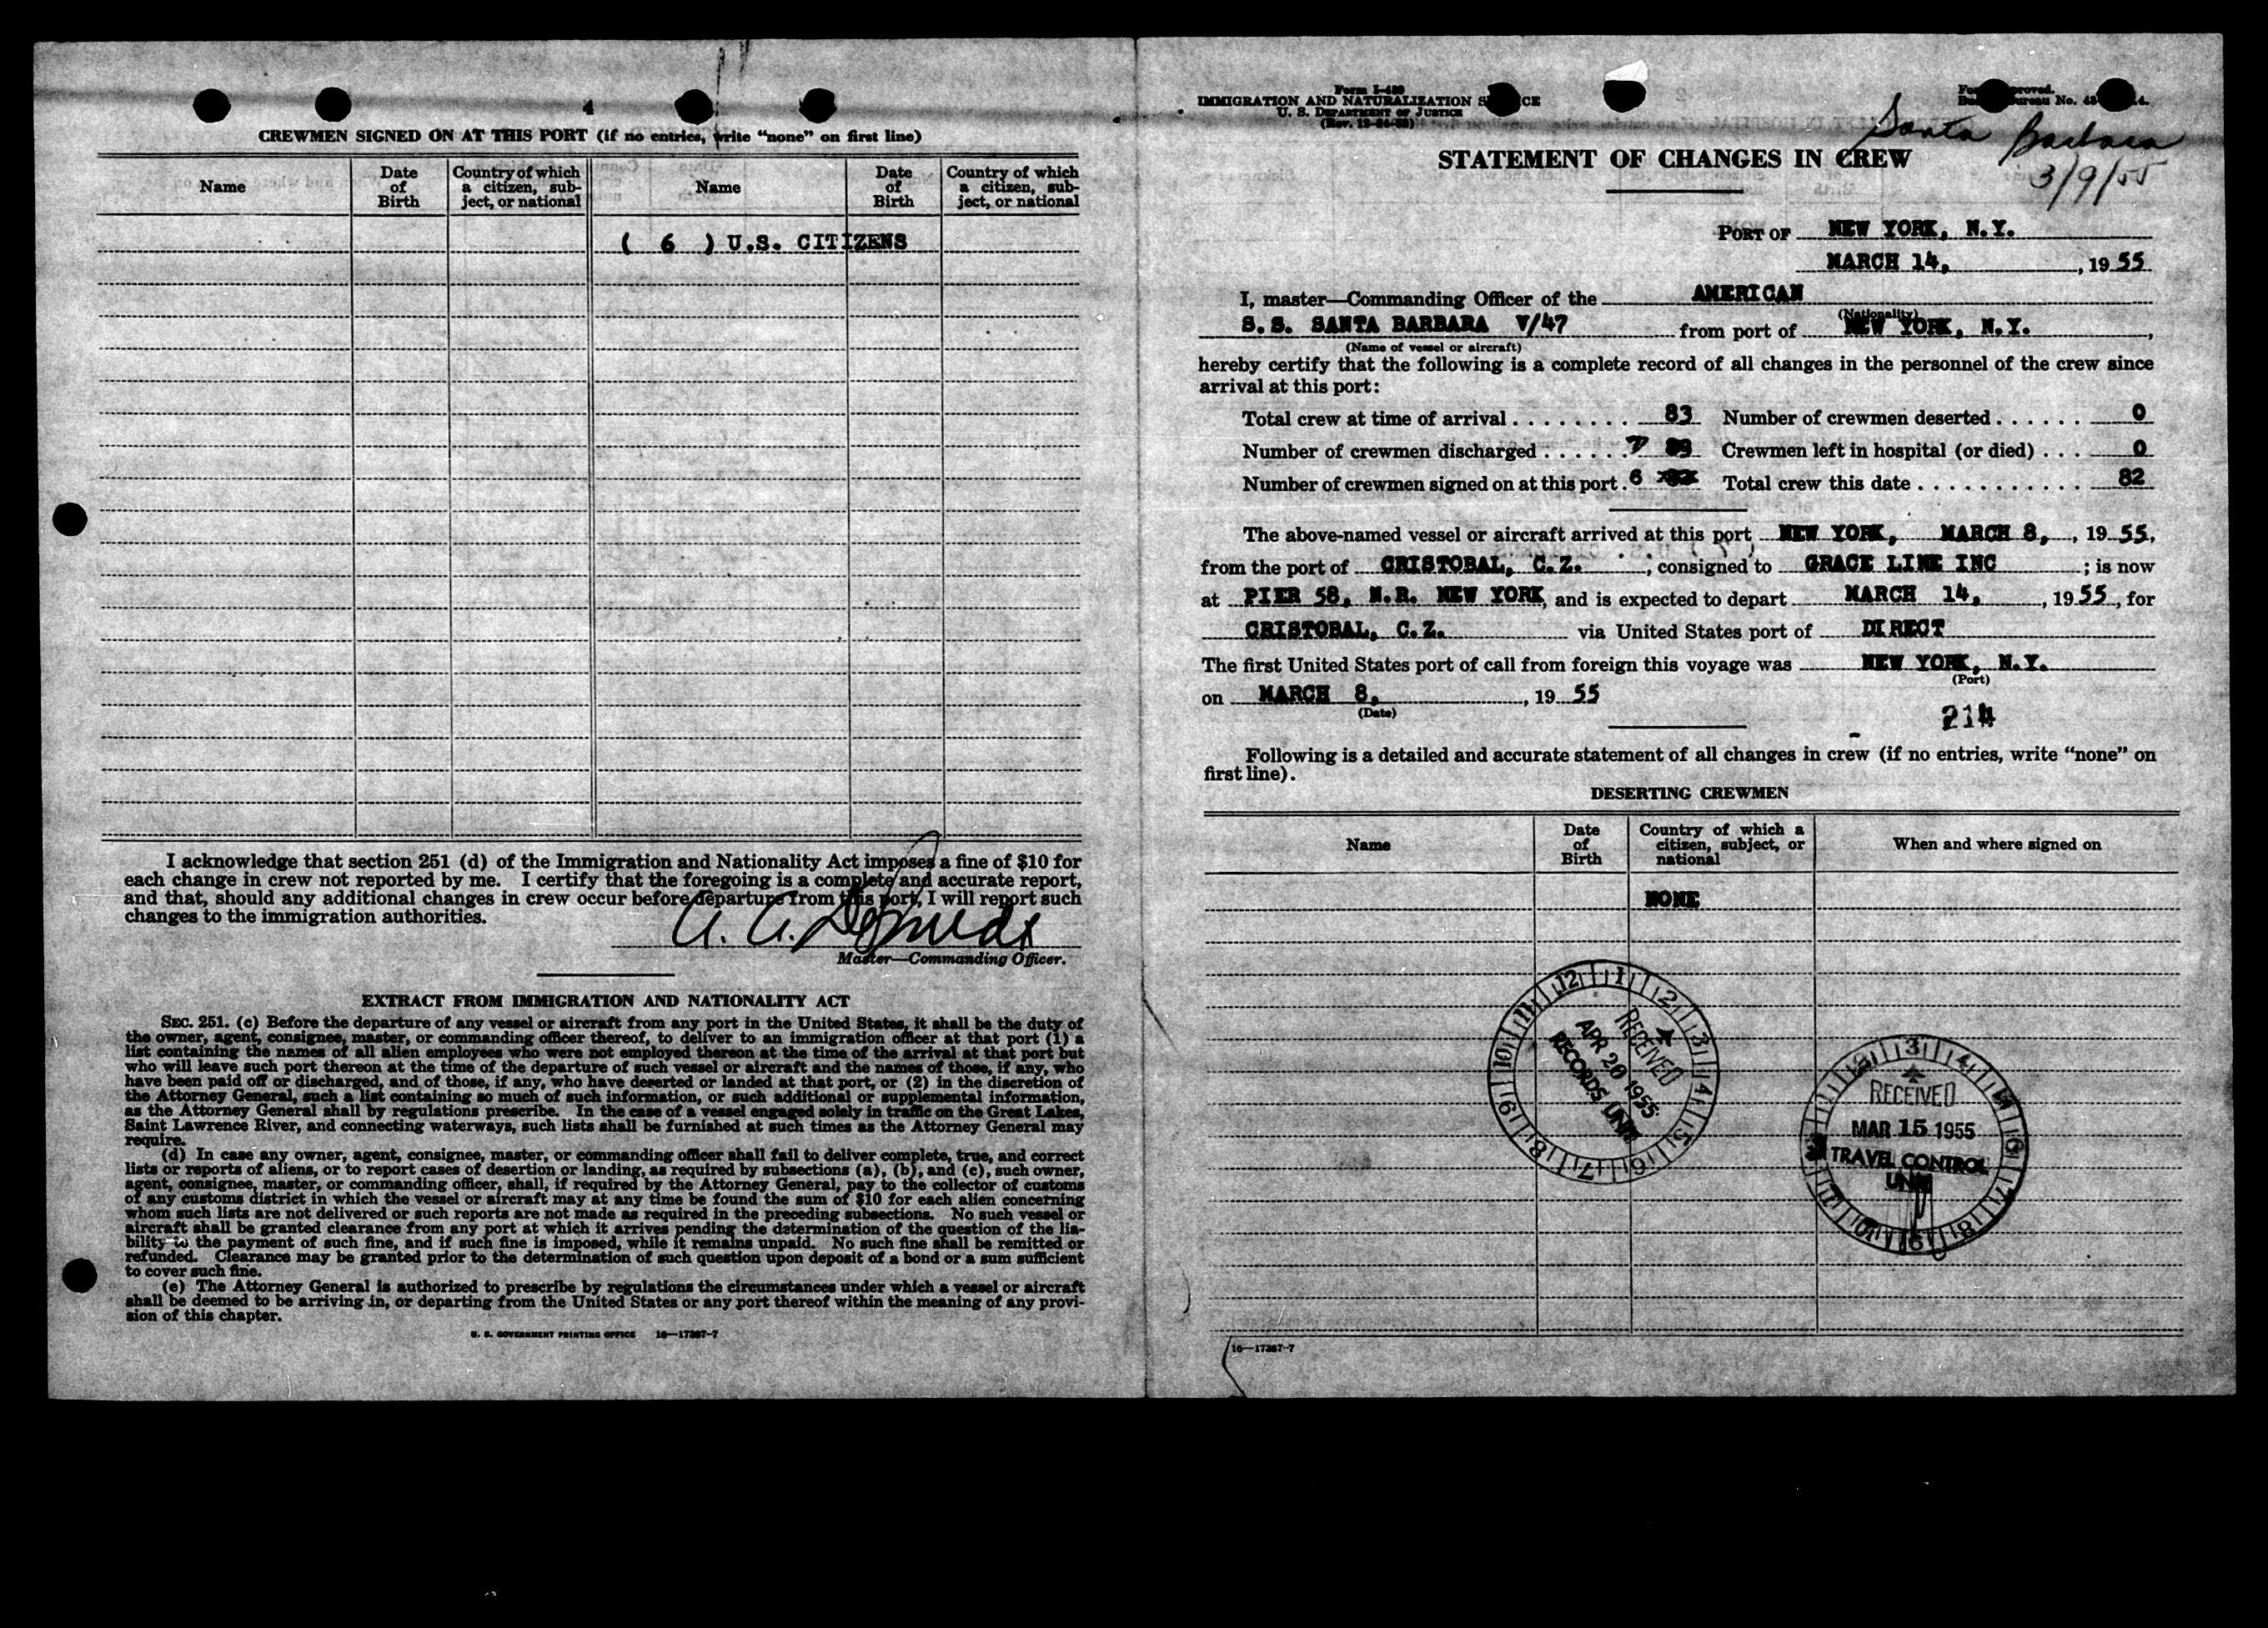 4
CREWMEN SIGNED ON AT THIS PORT (if no entries, write "none" on first line)
Name
Date of Birth
Country of which a citizen, subject, or national
Name
Date of Birth
Country of which a citizen, subject, or national
( 6 ) U.S. CITIZENS
I acknowledge that section 251 (d) of the Immigration and Nationality Act imposes a fine of $10 for
each change in crew not reported by me. I certify that the foregoing is a complete and accurate report,
and that, should any additional changes in crew occur before departure from this port, I will report such
changes to the immigration authorities.
Master—Commanding Officer.
EXTRACT FROM IMMIGRATION AND NATIONALITY ACT
SEC. 251. (c) Before the departure of any vessel or aircraft from any port in the United States, it shall be the duty of
the owner, agent, consignee, master, or commanding officer thereof, to deliver to an immigration officer at that port (1) a
list containing the names of all alien employees who were not employed thereon at the time of the arrival at that port but
who will leave such port thereon at the time of the departure of such vessel or aircraft and the names of those, if any, who
have been paid off or discharged, and of those, if any, who have deserted or landed at that port, or (2) in the discretion of
the Attorney General, such a list containing so much of such information, or such additional or supplemental information,
as the Attorney General shall by regulations prescribe. In the case of a vessel engaged solely in traffic on the Great Lakes,
Saint Lawrence River, and connecting waterways, such lists shall be furnished at such times as the Attorney General may
require.
(d) In case any owner, agent, consignee, master, or commanding officer shall fail to deliver complete, true, and correct
lists or reports of aliens, or to report cases of desertion or landing, as required by subsections (a), (b), and (c), such owner,
agent, consignee, master, or commanding officer, shall, if required by the Attorney General, pay to the collector of customs
of any customs district in which the vessel or aircraft may at any time be found the sum of $10 for each alien concerning
whom such lists are not delivered or such reports are not made as required in the preceding subsections. No such vessel or
aircraft shall be granted clearance from any port at which it arrives pending the determination of the question of the lia-
bility to the payment of such fine, and if such fine is imposed, while it remains unpaid. No such fine shall be remitted or
refunded. Clearance may be granted prior to the determination of such question upon deposit of a bond or a sum sufficient
to cover such fine.
(e) The Attorney General is authorized to prescribe by regulations the circumstances under which a vessel or aircraft
shall be deemed to be arriving in, or departing from the United States or any port thereof within the meaning of any provi-
sion of this chapter.
U. S. GOVERNMENT PRINTING OFFICE 16—17367-7
Form I-489
IMMIGRATION AND NATURALIZATION
U. S. DEPARTMENT OF JUSTICE
Santa Barbara
3/9/55
STATEMENT OF CHANGES IN CREW
PORT OF NEW YORK, N.Y.
MARCH 14, , 19 55
I, master—Commanding Officer of the AMERICAN
(Nationality)
S.S. SANTA BARBARA V/47 from port of NEW YORK, N.Y. ,
(Name of vessel or aircraft)
hereby certify that the following is a complete record of all changes in the personnel of the crew since
arrival at this port:
Total crew at time of arrival . . . . . . . . 83 Number of crewmen deserted . . . . . . 0
Number of crewmen discharged . . . . . . 7 Crewmen left in hospital (or died) . . . 0
Number of crewmen signed on at this port . 6 Total crew this date . . . . . . . . . . . 82
The above-named vessel or aircraft arrived at this port NEW YORK, MARCH 8, , 19 55,
from the port of CRISTOBAL, C.Z. , consigned to GRACE LINE INC ; is now
at PIER 58, N.R. NEW YORK, and is expected to depart MARCH 14, , 19 55 , for
CRISTOBAL, C.Z. via United States port of DIRECT
The first United States port of call from foreign this voyage was NEW YORK, N.Y.
(Port)
on MARCH 8, , 19 55
(Date)
214
Following is a detailed and accurate statement of all changes in crew (if no entries, write "none" on
first line).
DESERTING CREWMEN
Name
Date of Birth
Country of which a citizen, subject, or national
When and where signed on
NONE
12 1 2 3 4 5 6 7 8 9 10 11
RECEIVED
APR 20 1955
RECORDS UNIT
RECEIVED
MAR 15 1955
TRAVEL CONTROL
UNIT
16—17367-7